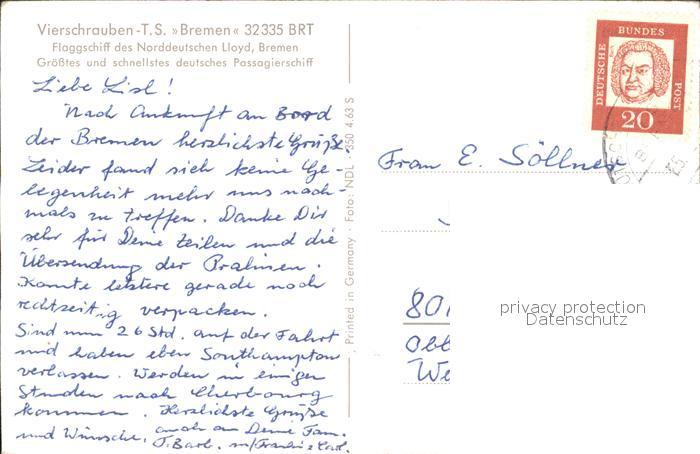 Vierschrauben-T.S. »Bremen« 32335 BRT
Flaggschiff des Norddeutschen Lloyd, Bremen
Größtes und schnellstes deutsches Passagierschiff
Liebe Lisl!
Nach Ankunft an Bord
der Bremen herzlichste Grüße.
Leider fand sich keine Ge-
legenheit mehr uns noch-
mals zu treffen. Danke Dir
sehr für Deine Zeilen und die
Übersendung der Pralinen.
Konnte letztere gerade noch
rechtzeitig verpacken.
Sind nun 26 Std. auf der Fahrt
und haben eben Southampton
verlassen. Werden in einigen
Stunden nach Cherbourg
kommen. Herzlichste Grüße
und Wünsche, auch an Deine Fam.
Printed in Germany · Foto: NDL · 350 4.63 S
DEUTSCHE
BUNDES
POST
20
Frau E. Söllner
801
Obe
We
privacy protection
Datenschutz